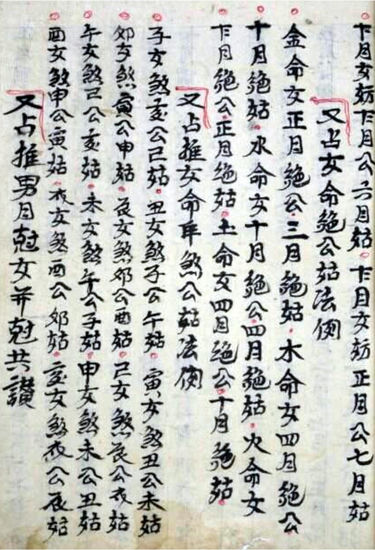 十一月女妨十一月公六月姑。十二月女妨正月公七月姑
又占女命絕公姑法例
金命女正月絕公。三月絕姑。木命女四月絕公
十月絕姑。水命女十月絕公。四月絕姑。火命女
十二月絕公。正月絕姑。土命女四月絕公。十月絕姑。
又占推女命年煞公姑法例
子女煞亥公巳姑。丑女煞子公午姑。寅女煞丑公未姑
卯女煞寅公申姑。辰女煞卯公酉姑。巳女煞辰公戌姑
午女煞巳公亥姑。未女煞午公子姑。申女煞未公丑姑
酉女煞申公寅姑。戌女煞酉公卯姑。亥女煞戌公辰姑
又占推男月尅女并尅共讃